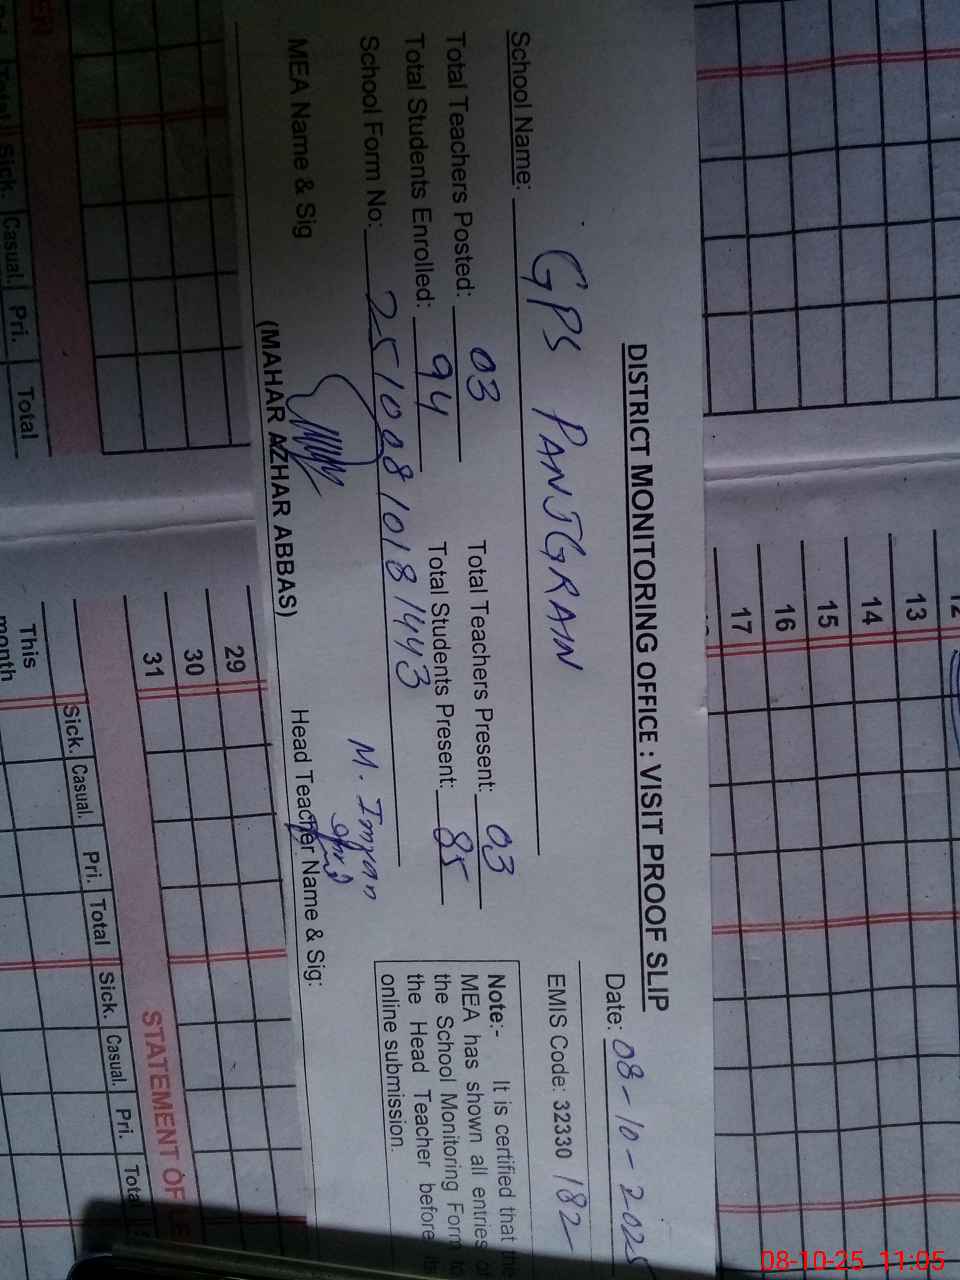 DISTRICT MONITORING OFFICE : VISIT PROOF SLIP
Date: 08-10-2025
School Name: GPS PANJGRAIN
EMIS Code: 32330 182
Total Teachers Posted: 03 Total Teachers Present: 03
Total Students Enrolled: 94 Total Students Present: 85
School Form No: 25100810181443
Note:- It is certified that the
MEA has shown all entries of
the School Monitoring Form to
the Head Teacher before its
online submission.
M. Imran
MEA Name & Sig
(MAHAR AZHAR ABBAS)
Head Teacher Name & Sig:
12
13
14
15
16
17
29
30
31
This
month
Sick. Casual. Pri. Total Sick. Casual. Pri. Total
STATEMENT OF
Total Sick. Casual. Pri. Total
08-10-25 11:05